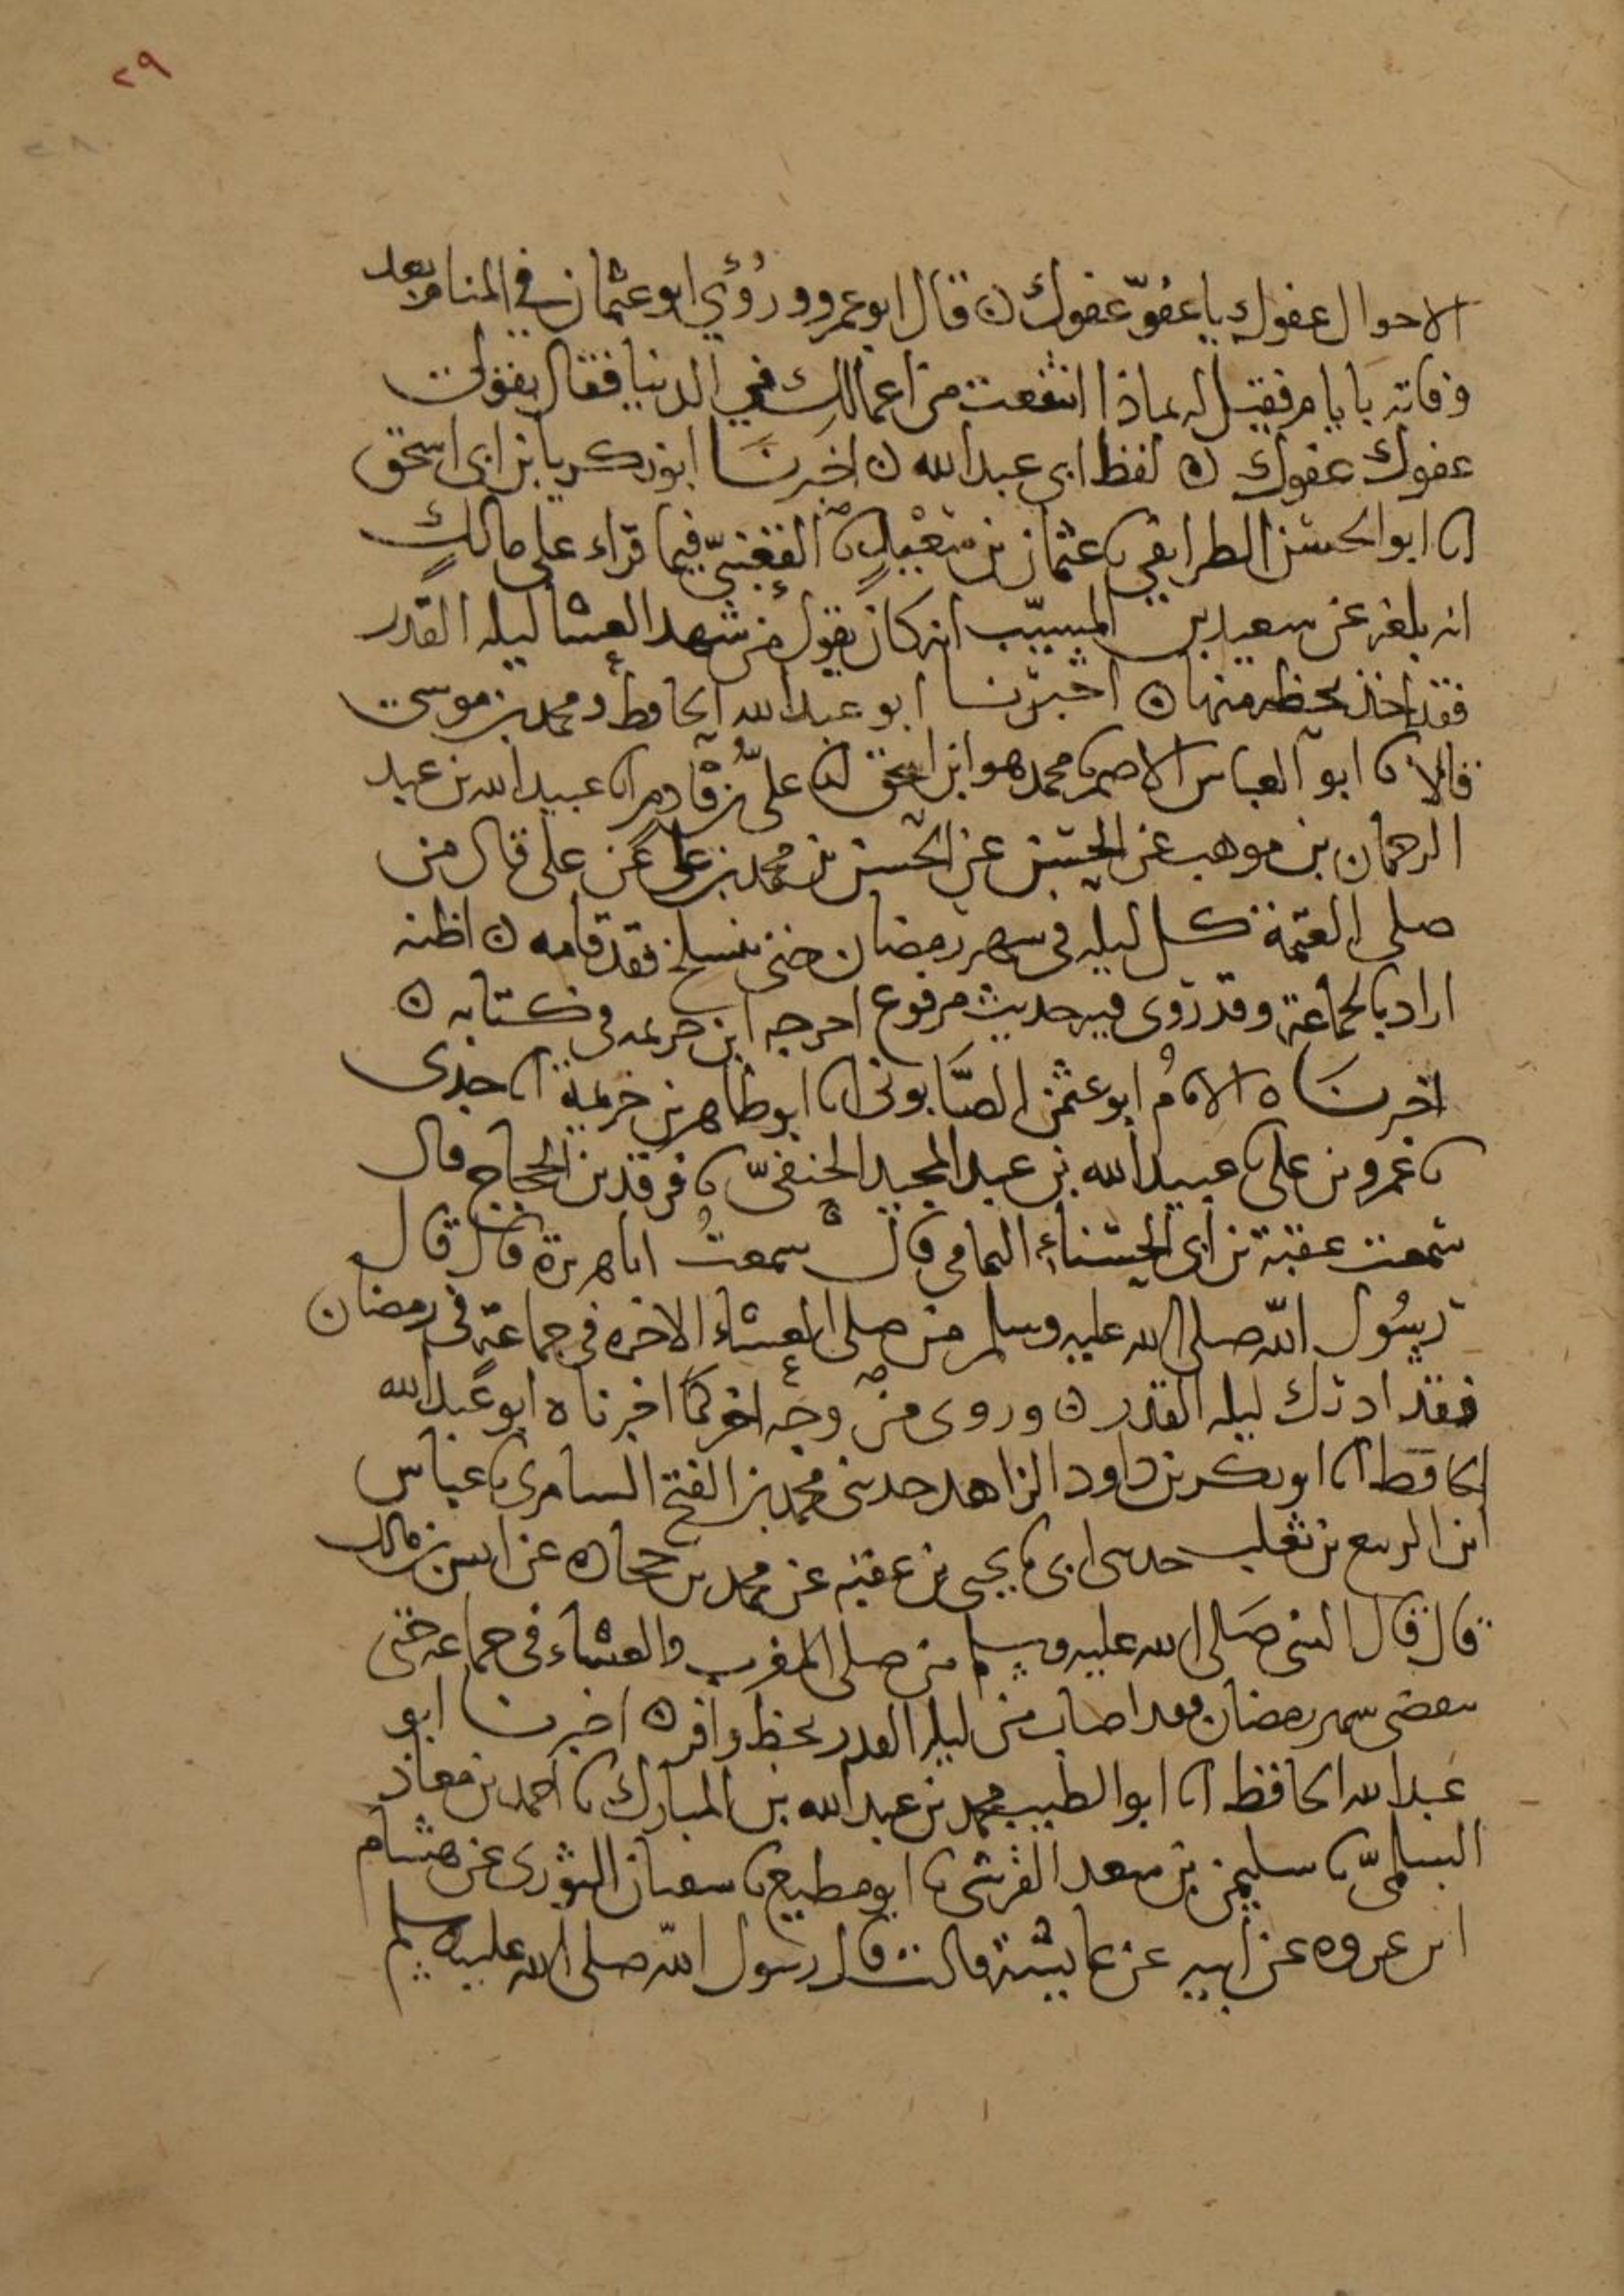 ٢٩
٢٨
الاحوال عفوك يا عفوّ عفوك ن قال ابو عمرو ورُؤي ابو عثمان في المنام بعد
وفاته بايام فقيل له بماذا انتفعت من اعمالك في الدنيا فقال بقولي
عفوك عفوك ن لفظ ابي عبد الله ن اخبرنا ابو زكريا بن ابي اسحق
انا ابو الحسن الطرايفي نا عثمان بن سعيد نا القعنبيّ فيما قراء على مالك
انه بلغه عن سعيد بن المسيّب انه كان يقول من شهد العشا ليله القدر
فقد اخذ بحظه منها ن اخبرنا ابو عبد الله الحافظ ومحمد بن موسى
قالا نا ابو العباس الاصم نا محمد هو ابن اسحق انا عليّ بن قادم انا عبيد الله بن عبد
الرحمان بن موهب عن الحسن بن محمد بن علي عن علي قال من
صلى العتمة كل ليله في شهر رمضان حتى ينسلخ فقد قامه ن اظنه
اراد بالجماعة وقد روى فيه حديث مرفوع اخرجه ابن خزيمه في كتابه ن
اخبرناه الامامُ ابو عثمن الصّابوني انا ابو طاهر بن خزيمة انا جدي
نا عمرو بن علي نا عبيد الله بن عبد المجيد الحنفيّ نا فرقد بن الحجاج قال
سمعت عقبة بن ابي الحسناء اليمامي قال سمعتُ اباهريرة قال قال
رسُول الله صلى الله عليه وسلم من صلى العشاء الاخره في جماعةٍ في رمضان
فقد ادرك ليله القدر ن وروى من وجه اخر كما اخبرناه ابو عبد الله
الحافظ انا ابو بكر بن داود الزاهد حدثني محمد بن الفتح السامري نا عباس
ابن الربيع بن ثعلب حدثني ابي نا يحيى بن عقبه عن محمد بن جحاده عن انس بن مالك
قال قال النبي صَلى الله عليه وسلم من صلى المغرب والعشاء في جماعه حتى
ينقضى شهر رمضان فقد اصاب من ليله القدر بحظ وافر ن اخبرنا ابو
عبد الله الحافظ انا ابو الطيب محمد بن عبد الله بن المبارك نا احمد بن معاذ
السلميّ نا سليمن بن سعد القرشي نا ابو مطيع نا سفيان الثوري عن هشام
ابن عروه عن ابيه عن عايشة قالت قال رسول الله صلى الله عليه وسلم